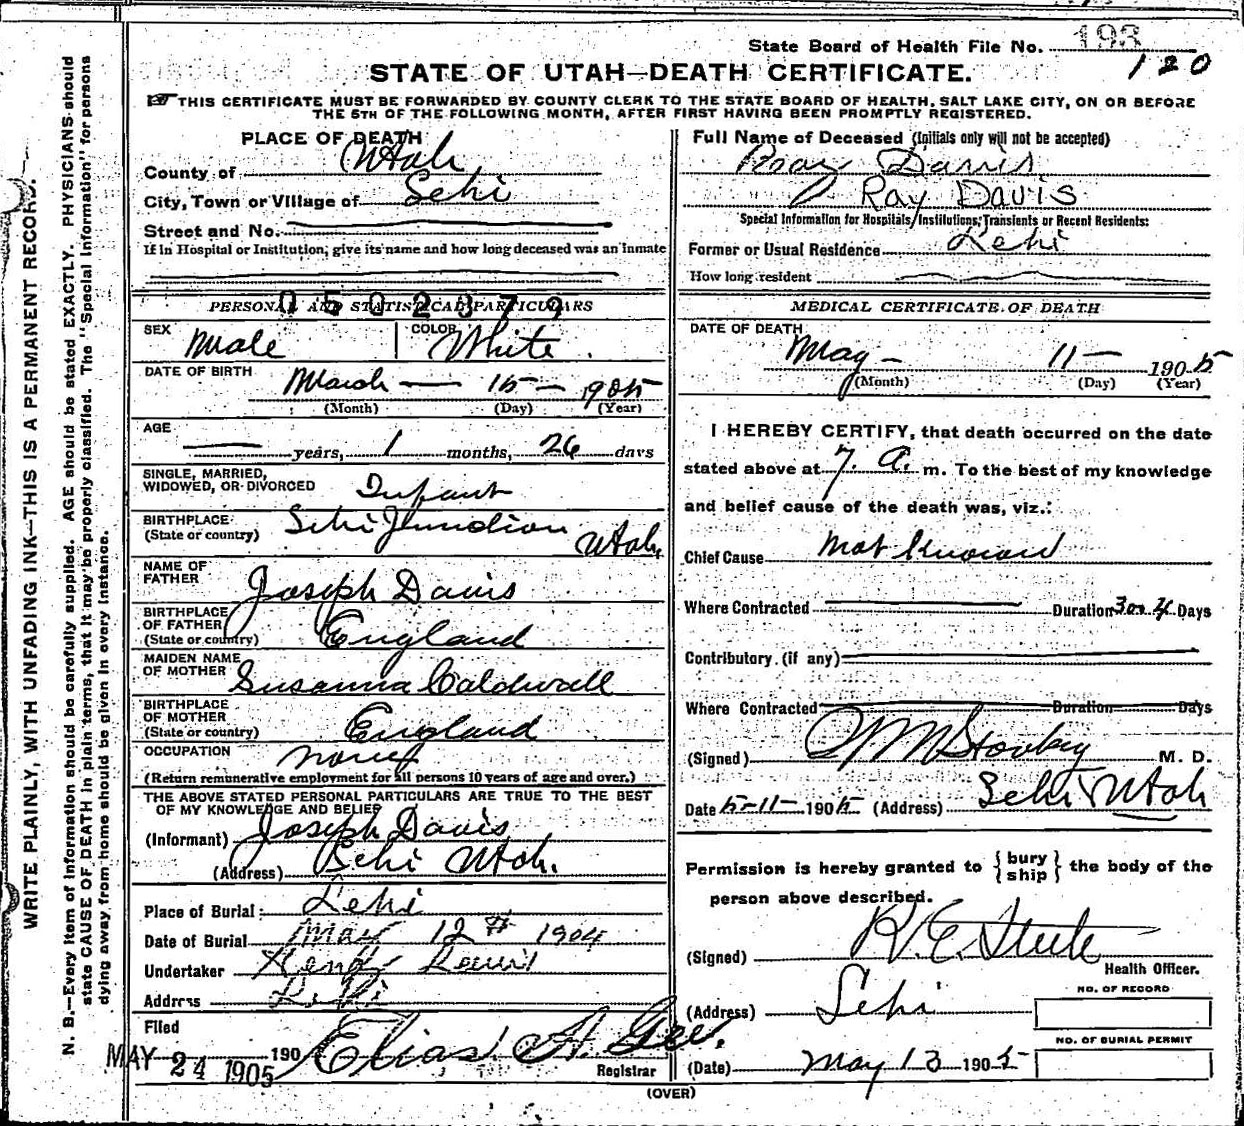 State Board of Health File No. 193
120
STATE OF UTAH—DEATH CERTIFICATE.
THIS CERTIFICATE MUST BE FORWARDED BY COUNTY CLERK TO THE STATE BOARD OF HEALTH, SALT LAKE CITY, ON OR BEFORE
THE 5TH OF THE FOLLOWING MONTH, AFTER FIRST HAVING BEEN PROMPTLY REGISTERED.
WRITE PLAINLY, WITH UNFADING INK—THIS IS A PERMANENT RECORD.
N. B.—Every item of information should be carefully supplied. AGE should be stated EXACTLY. PHYSICIANS should
state CAUSE OF DEATH in plain terms, that it may be properly classified. The "Special Information" for persons
dying away from home should be given in every instance.
PLACE OF DEATH
County of Utah
City, Town or Village of Lehi
Street and No.
If in Hospital or Institution, give its name and how long deceased was an inmate
PERSONAL AND STATISTICAL PARTICULARS
0502379
SEX Male COLOR White
DATE OF BIRTH March 15 1905
(Month) (Day) (Year)
AGE
years, 1 months, 26 days
SINGLE, MARRIED,
WIDOWED, OR DIVORCED Infant
BIRTHPLACE
(State or country) Lehi Junction Utah
NAME OF
FATHER Joseph Davis
BIRTHPLACE
OF FATHER
(State or country) England
MAIDEN NAME
OF MOTHER Susanna Caldwall
BIRTHPLACE
OF MOTHER
(State or country) England
OCCUPATION none
(Return remunerative employment for all persons 10 years of age and over.)
THE ABOVE STATED PERSONAL PARTICULARS ARE TRUE TO THE BEST
OF MY KNOWLEDGE AND BELIEF
(Informant) Joseph Davis
(Address) Lehi Utah.
Place of Burial: Lehi
Date of Burial May 12th 1904
Undertaker
Address Lehi
Filed
MAY 24 1905 190 Elias A. Gee.
Registrar
Full Name of Deceased (Initials only will not be accepted)
Roay Davis
Ray Davis
Special Information for Hospitals, Institutions, Transients or Recent Residents:
Former or Usual Residence Lehi
How long resident
MEDICAL CERTIFICATE OF DEATH
DATE OF DEATH
May 11 1905
(Month) (Day) (Year)
I HEREBY CERTIFY, that death occurred on the date
stated above at 7. A. m. To the best of my knowledge
and belief cause of the death was, viz.:
Chief Cause Not Known
Where Contracted Duration 3 or 4 Days
Contributory (if any)
Where Contracted Duration Days
(Signed) M. D.
Date 5-11-1905 (Address) Lehi Utah
Permission is hereby granted to {bury ship} the body of the
person above described.
(Signed)
Health Officer.
(Address) Lehi
NO. OF RECORD
NO. OF BURIAL PERMIT
(Date) May 13 1905
(OVER)